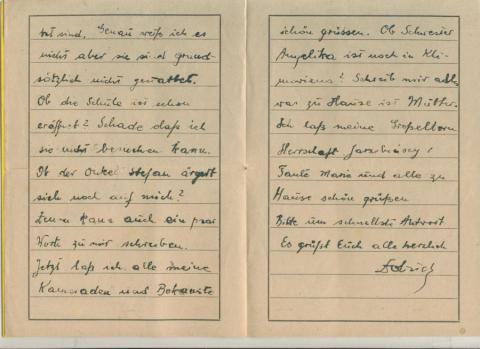 tet sind. Genau weiß ich es
nicht aber sie sind grund-
sätzlich nicht gestattet.
Ob die Schule ist schon
eröffnet? Schade daß ich
sie nicht besuchen kann.
Ob der Onkel Stefan ärgert
sich noch auf mich?
kann auch ein paar
Worte zu mir schreiben.
Jetzt laß ich alle meine
Kameraden und Bekannte
schön grüssen. Ob Schwester
Angelika ist noch in Kli-
Schreib mir alles
was zu Hause ist Mutter.
Ich laß meine Großeltern
Herrschaft
Tante Maria und alle zu
Hause schön grüßen
Bitte um schnellste Antwort
Es grüßt Euch alle herzlich